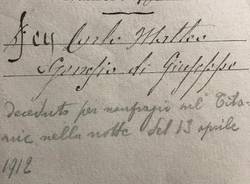 Fey Carlo Matteo
Ignazio di Giuseppe
deceduto per naufragio nel Tita-
nic nella notte del 13 aprile
1912